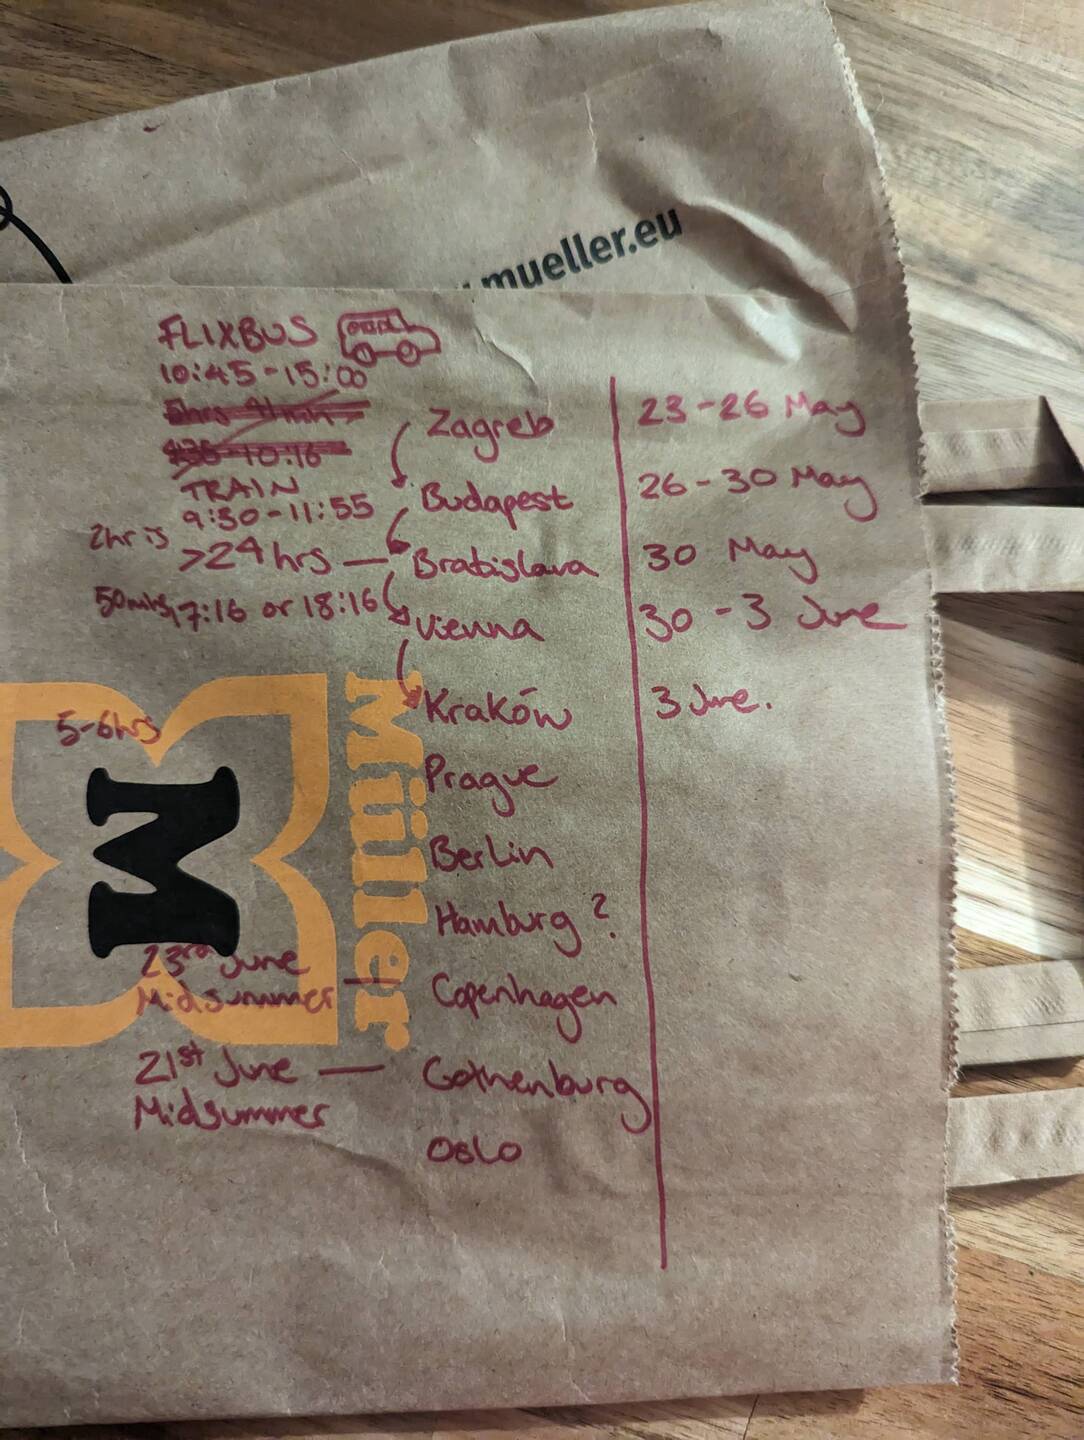 mueller.eu
FLIXBUS
10:45-15:00
Zagreb 23-26 May
TRAIN
Budapest 26-30 May
9:30-11:55
2hr is
>24hrs — Bratislava 30 May
50mins 17:16 or 18:16
Vienna 30-3 June
Kraków 3 June.
5-6hrs
Prague
Berlin
Hamburg?
23rd June
Midsummer — Copenhagen
21st June — Gothenburg
Midsummer
Oslo
Müller
M